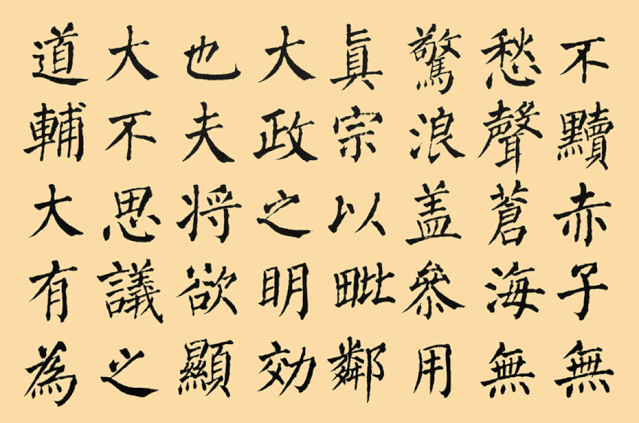 不黷赤子無
愁聲蒼海無
驚浪盖叅用
眞宗以毗鄰
大政之明効
也夫將欲顯
大不思議之
道輔大有為